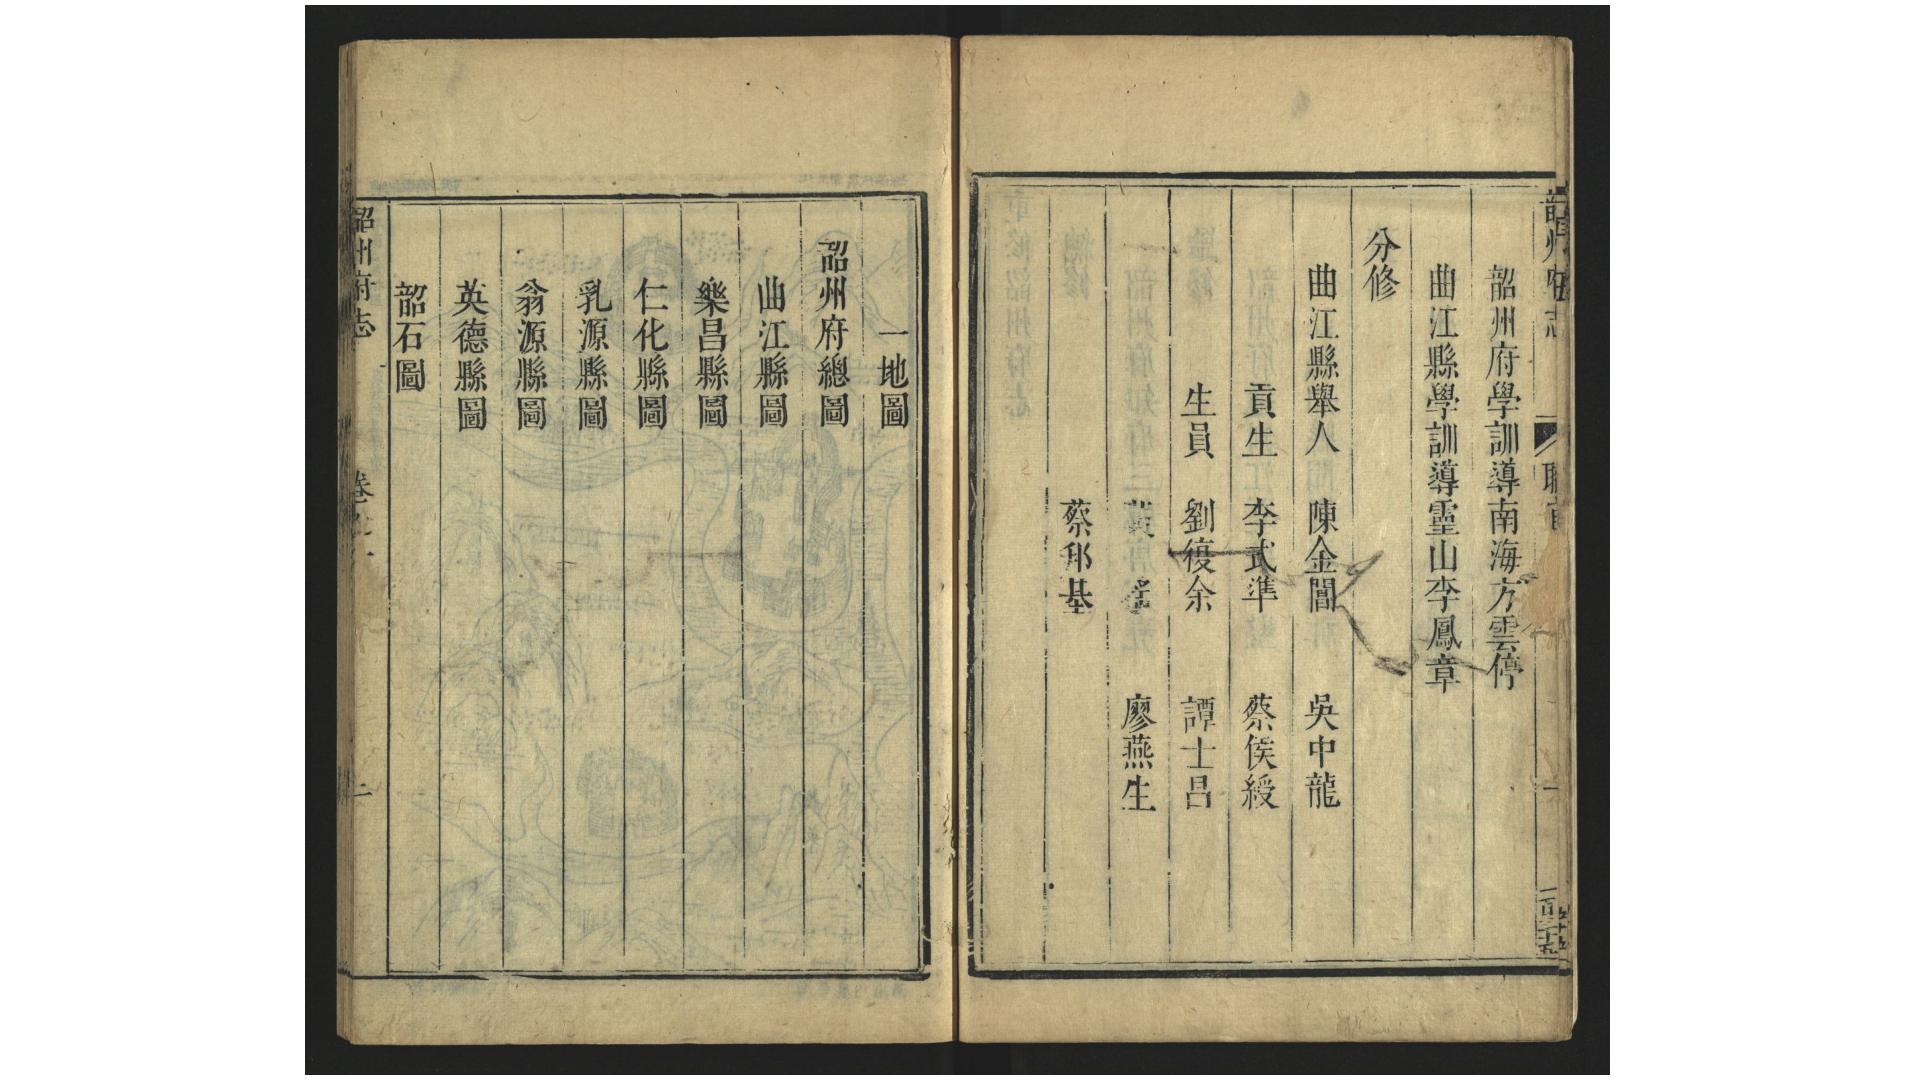 韶州府志
職官
一
韶州府學訓導南海方雲停
曲江縣學訓導靈山李鳳章
分修
曲江縣舉人 陳金誾 吳中龍
貢生 李式準 蔡侯綬
生員 劉徺余 譚士呂
黃 廖燕生
蔡邦基
一地圖
韶州府總圖
曲江縣圖
樂昌縣圖
仁化縣圖
乳源縣圖
翁源縣圖
英德縣圖
韶石圖
韶州府志
卷之一
二